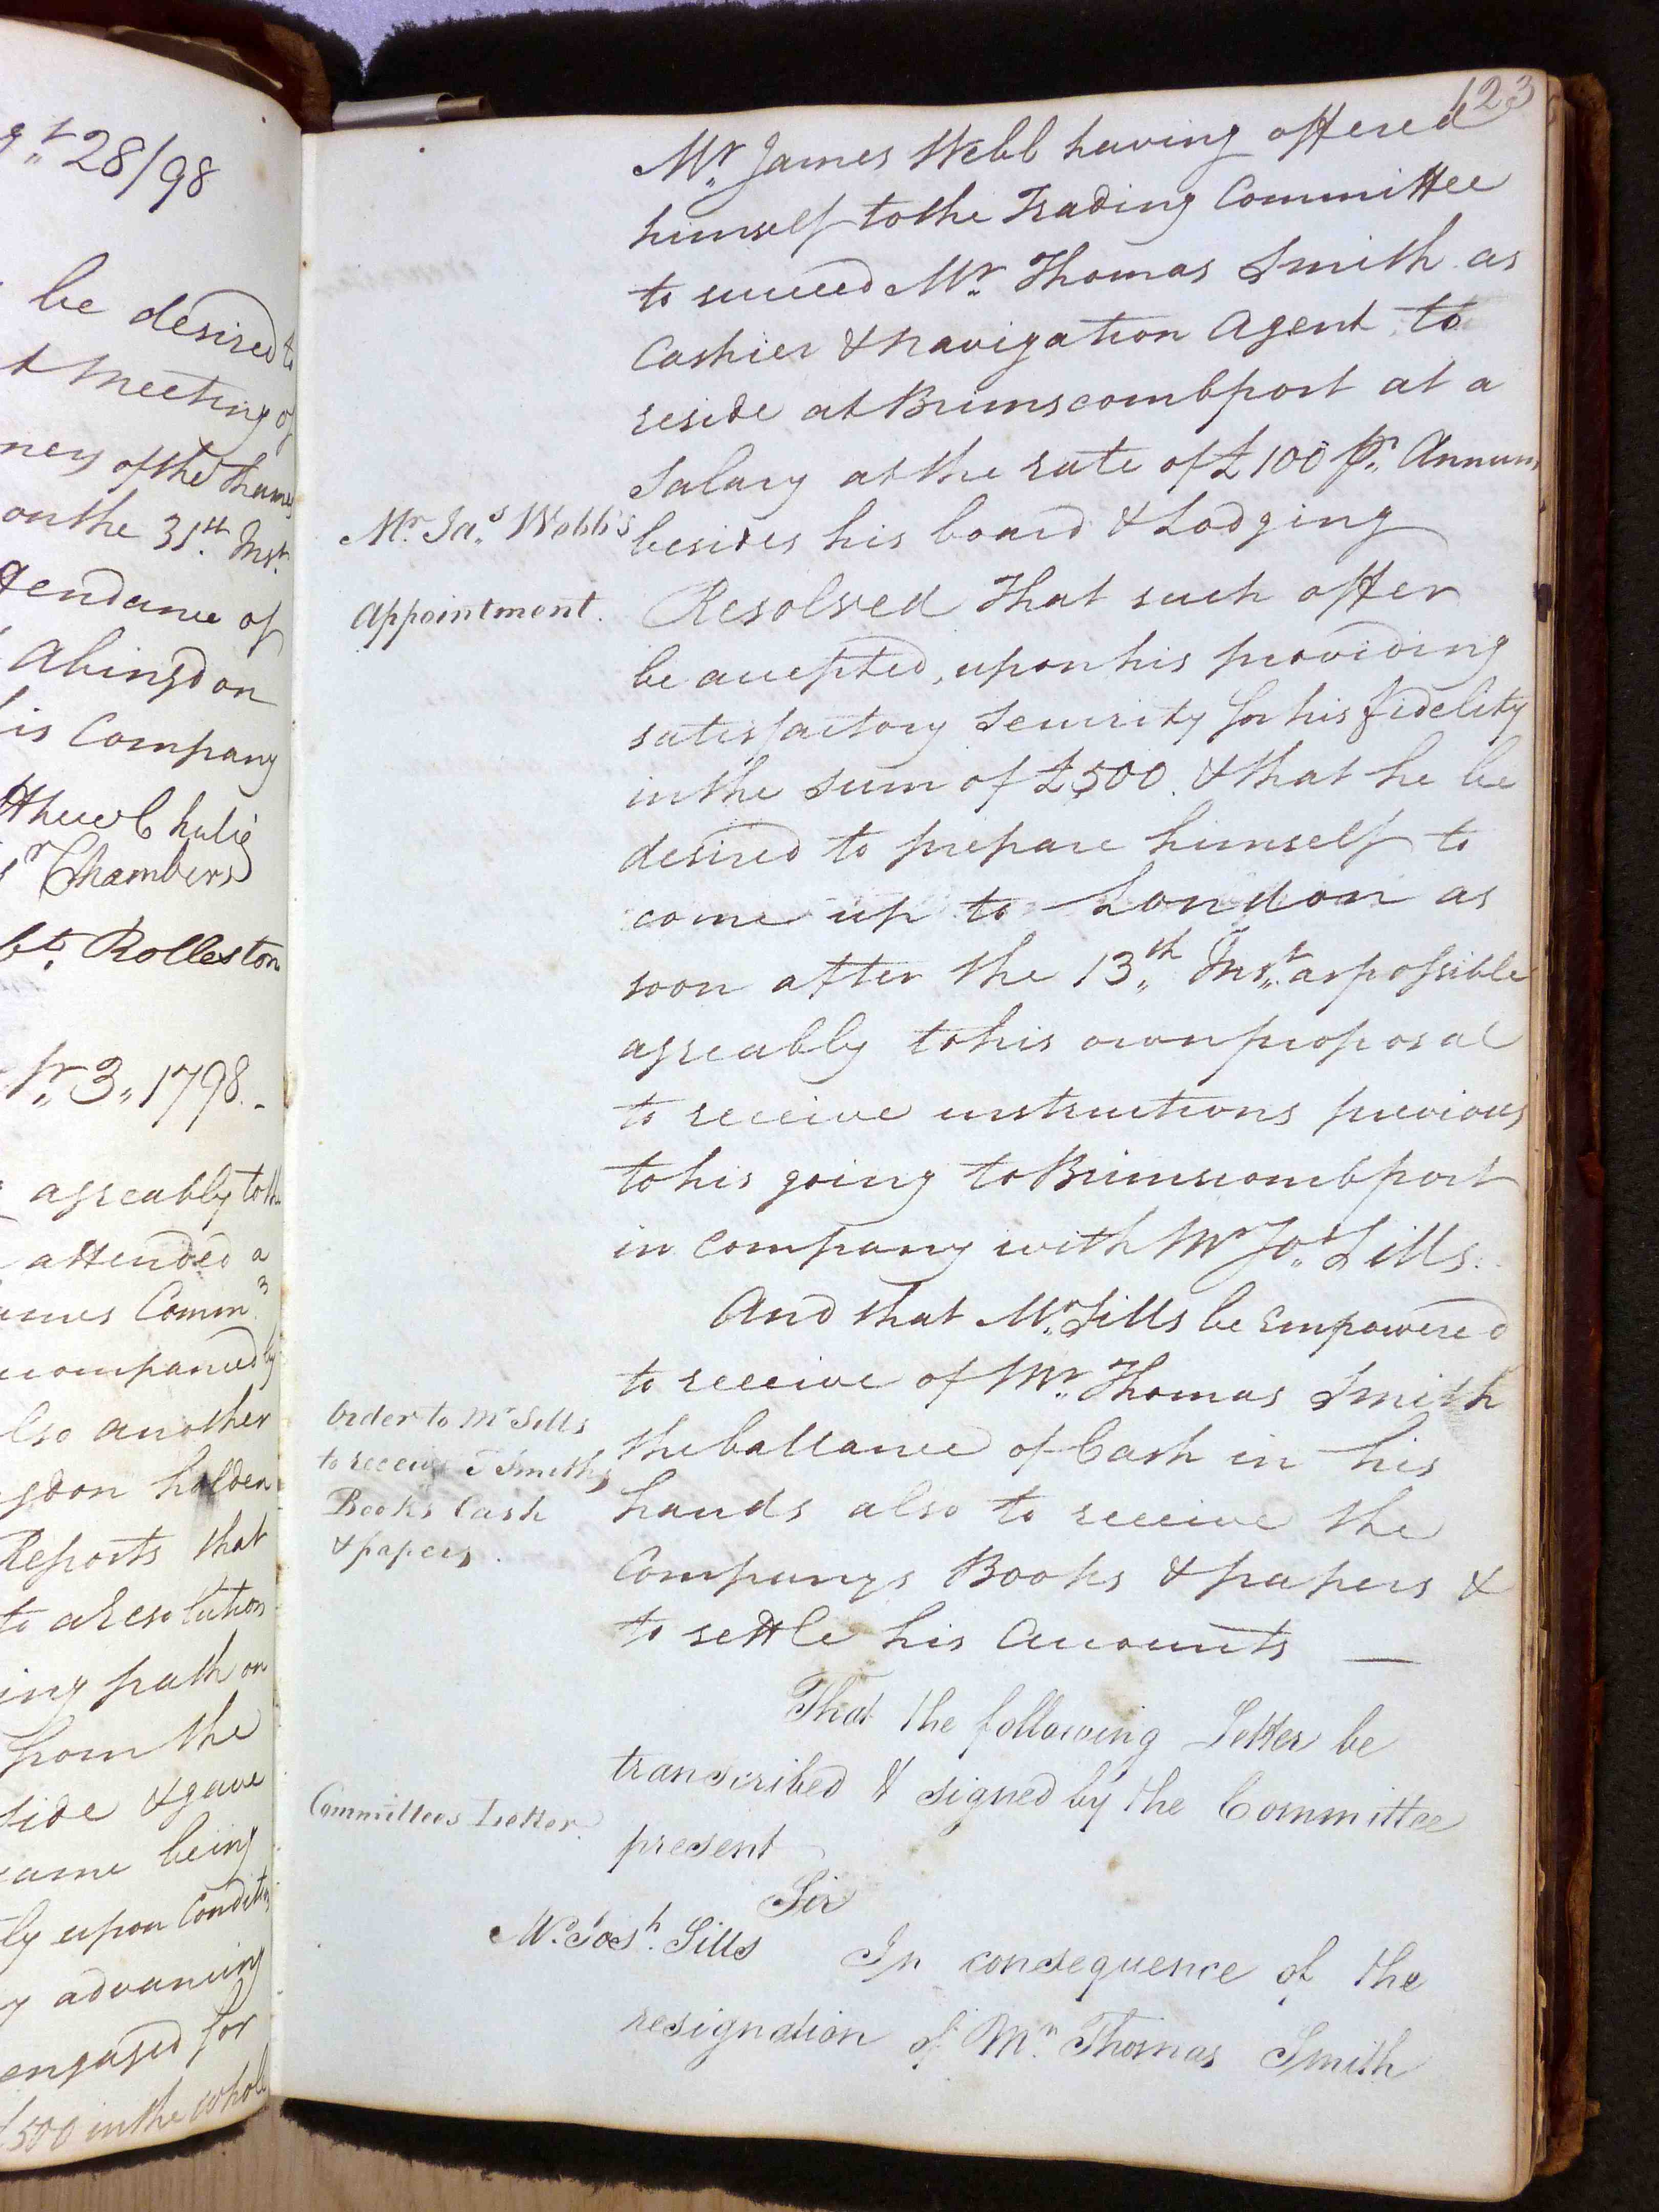 g,,t 28/98
be desired to
t Meeting of
ners of the Thames
on the 31st. Inst.
tendance of
Abingdon
is Company
tthew Chalie
r Chambers
bt. Rolleston
pr,, 3,, 1798. -
agreeably to the
attended a
ames Comm.
ccompanied by
lso another
gdon holden
Reports that
to a Resolution
ing path on
from the
side & gave
same being
ly upon Condition
y advancing
engaged for
£500 in the whole
123
Mr,, James Webb having offered
himself to the Trading Committee
to succeed Mr,, Thomas Smith as
Cashier & Navigation Agent to
reside at Brimscombport at a
Salary at the rate of £100 pr,, Annum
Mr. Jas,, Webb's
besides his board & Lodging
Appointment.
Resolved That such offer
be accepted, upon his providing
satisfactory Security for his fidelity
in the sum of £500. & that he be
desired to prepare himself to
come up to London as
soon after the 13,,th Inst,,. as possible
agreeably to his own proposal
to receive instructions previous
to his going to Brimscombport
in Company with Mr Jos,, Sills.
And that Mr,, Sills be Empowered
to receive of Mr,, Thomas Smith
Order to Mr Sills
to receive T Smith's
Books Cash
& papers.
the ballance of Cash in his
hands also to receive the
Companys Books & papers &
to settle his Accounts —
That the following Letter be
transcribed & signed by the Committee
Committees Letter.
present
Sir
Mr. Josh. Sills
In consequence of the
resignation of Mr. Thomas Smith